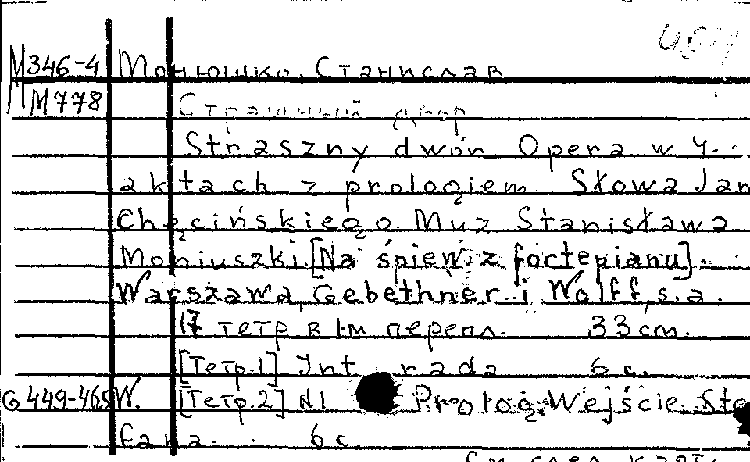 М346-4 Монюшко, Станислав
М778 Страшный двор
Straszny dwór Opera w 4
aktach z prologiem Słowa Jan
Chęcińskiego Muz Stanisława
Moniuszki [Na śpiew z fortepianu].
Warszawa, Gebethner i Wolff, s.a.
17 тетр в 1м перепл. 33cm.
[Тетр.1] Int rada 6 с.
G449-465W. [Тетр.2] N1 Prolog, Wejście Ste
fana. 6 с
См след карт.